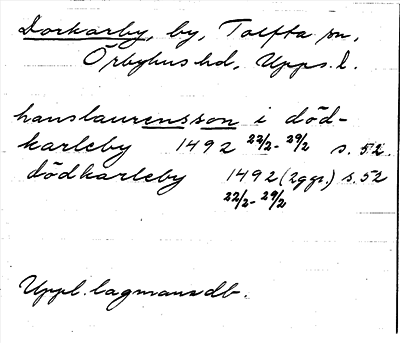 Dorkarby, by, Tolfta sn,
Örbyhus hd, Upps. l.
hanslaurensson i död-
karleby 1492 22/2-29/2 s. 52.
dödkarleby 1492 (2ggr.) s. 52
22/2-29/2
Uppl. lagmansdb.